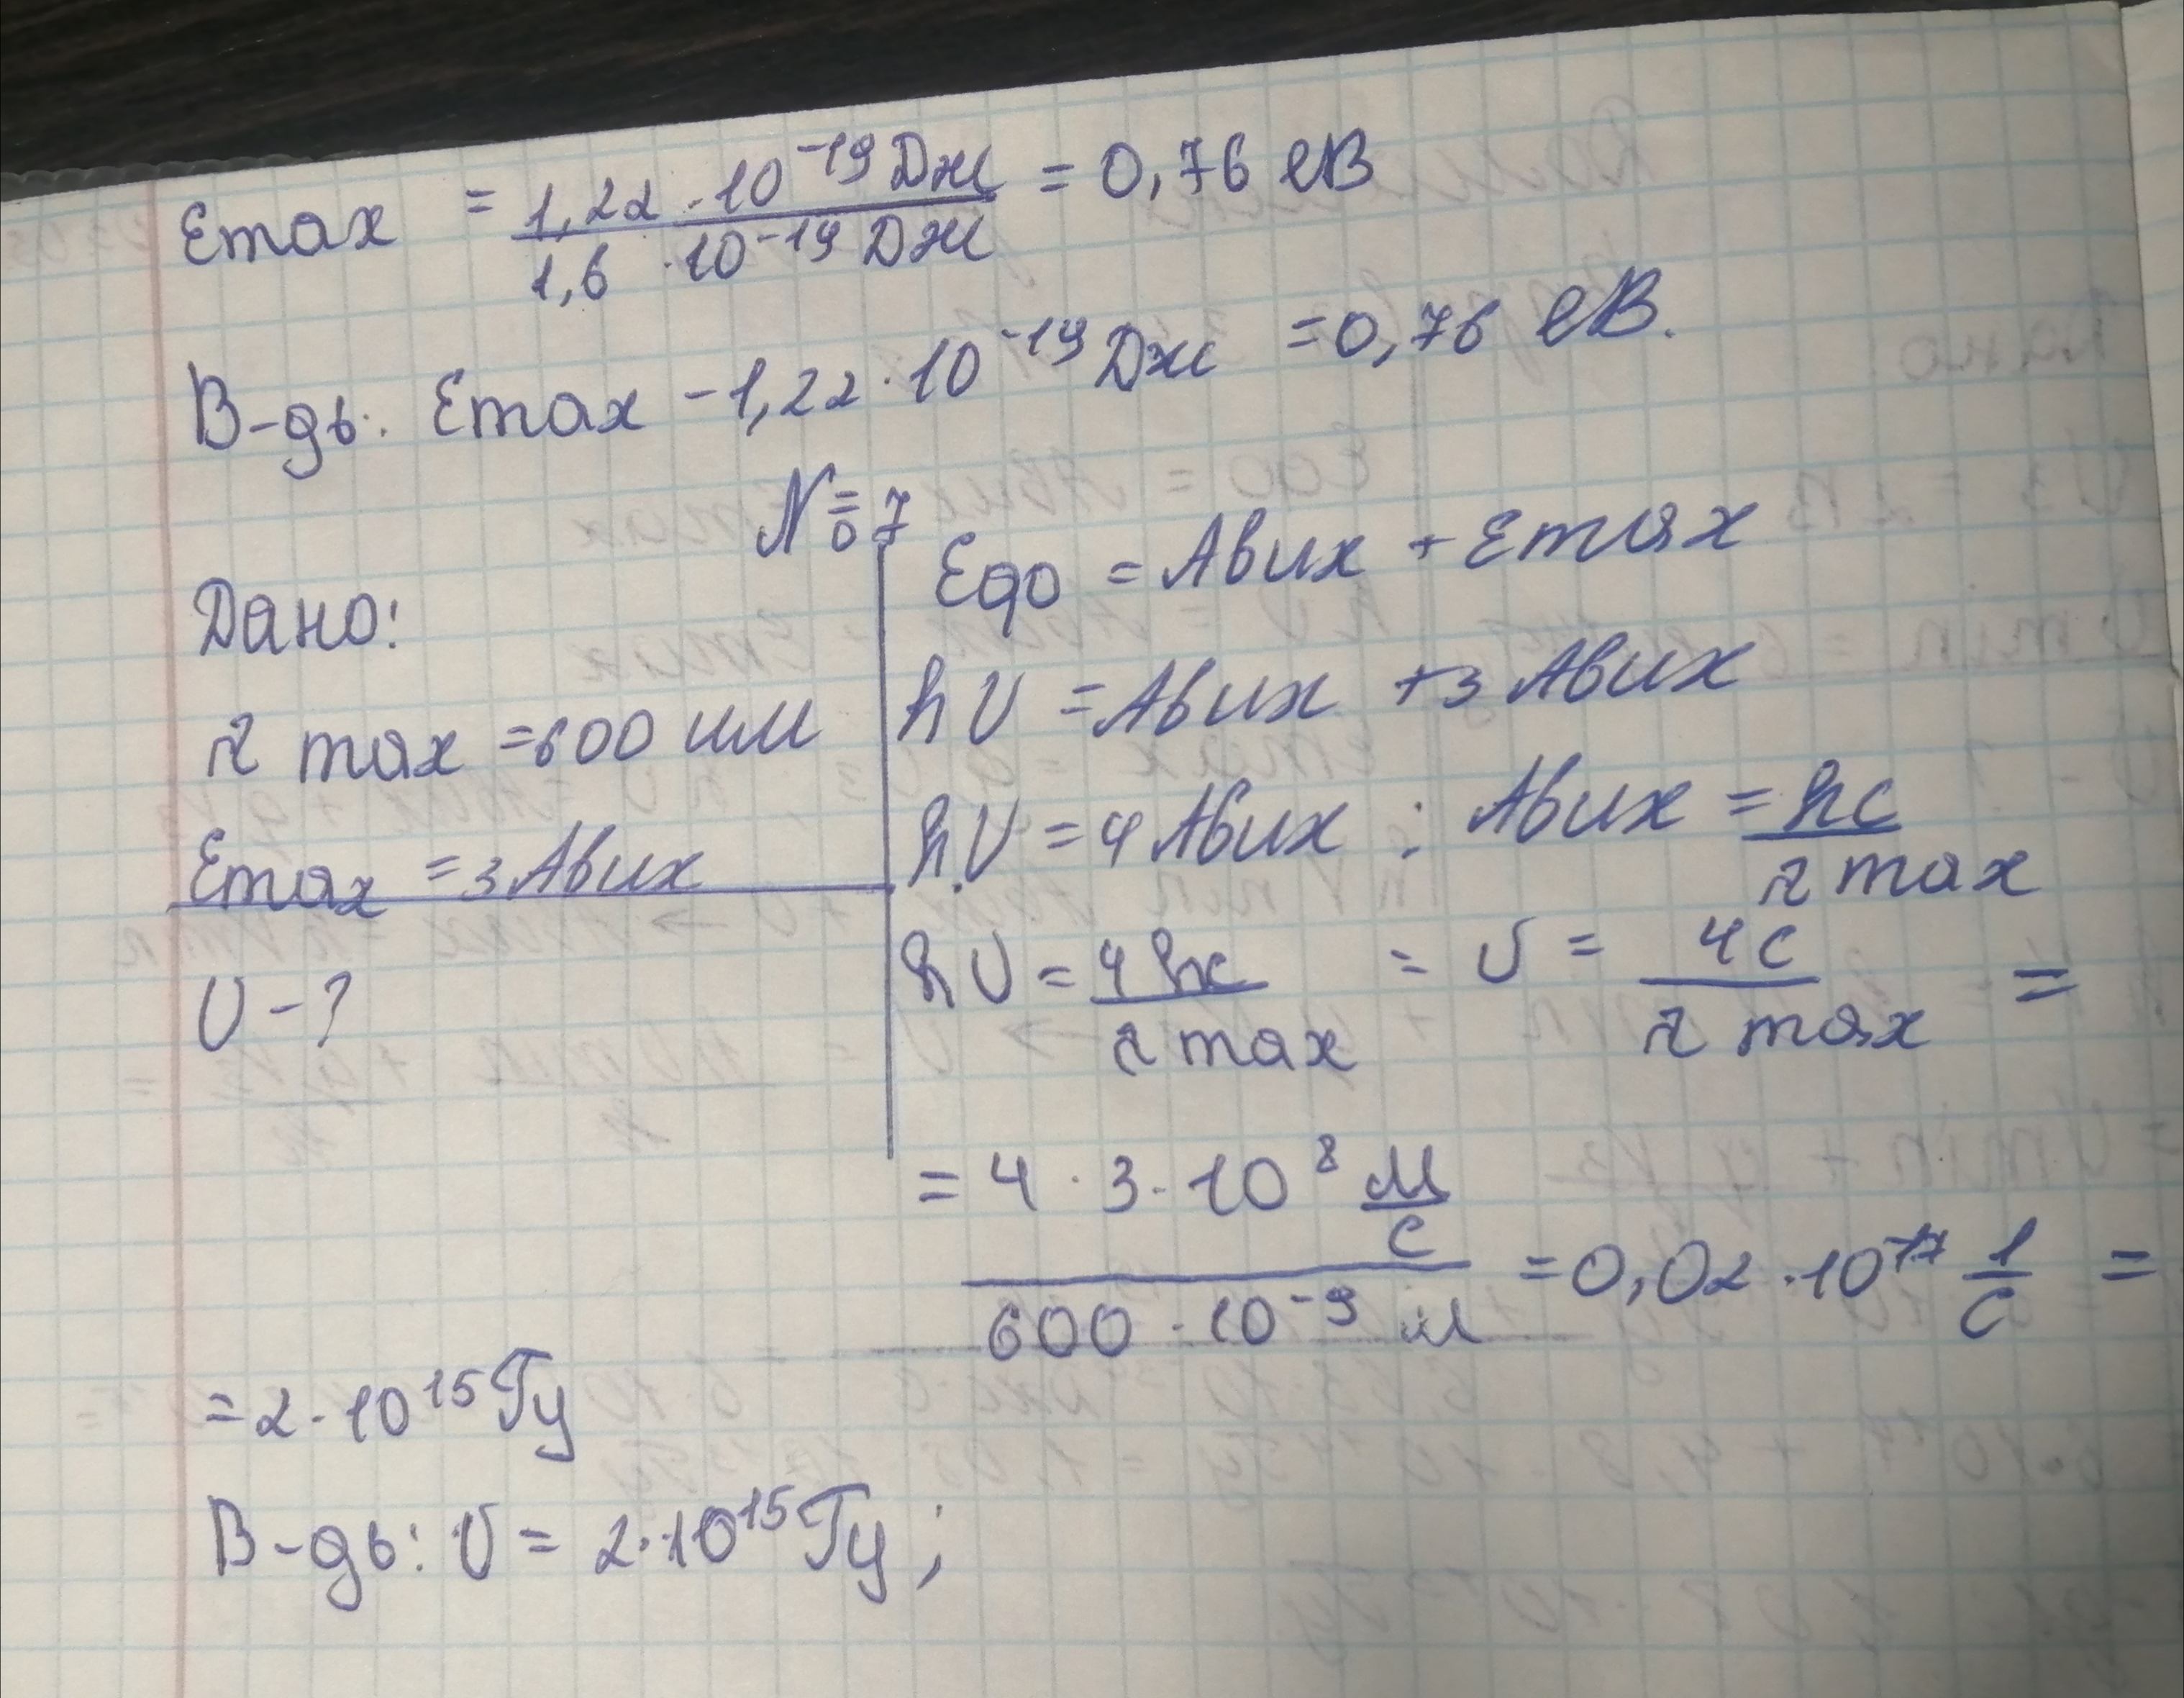 Emax = 1,22 · 10⁻¹⁹ Дж / 1,6 · 10⁻¹⁹ Дж = 0,76 еВ
В-дь: Emax - 1,22 · 10⁻¹⁹ Дж = 0,76 еВ.
№ 7
Дано:
λ max = 600 нм
Emax = 3 Авих
υ - ?
Eφο = Авих + Emax
hυ = Авих + 3 Авих
hυ = 4 Авих ; Авих = hc / λ max
hυ = 4hc / λ max = υ = 4c / λ max =
= 4 · 3 · 10⁸ м/с / 600 · 10⁻⁹ м = 0,02 · 10¹⁷ 1/с =
= 2 · 10¹⁵ Гц
В-дь: υ = 2 · 10¹⁵ Гц ;